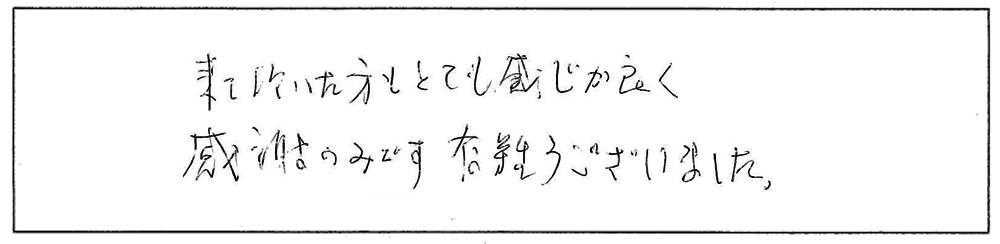 来て頂いた方もとても感じが良く
感謝のみです 有難うございました。